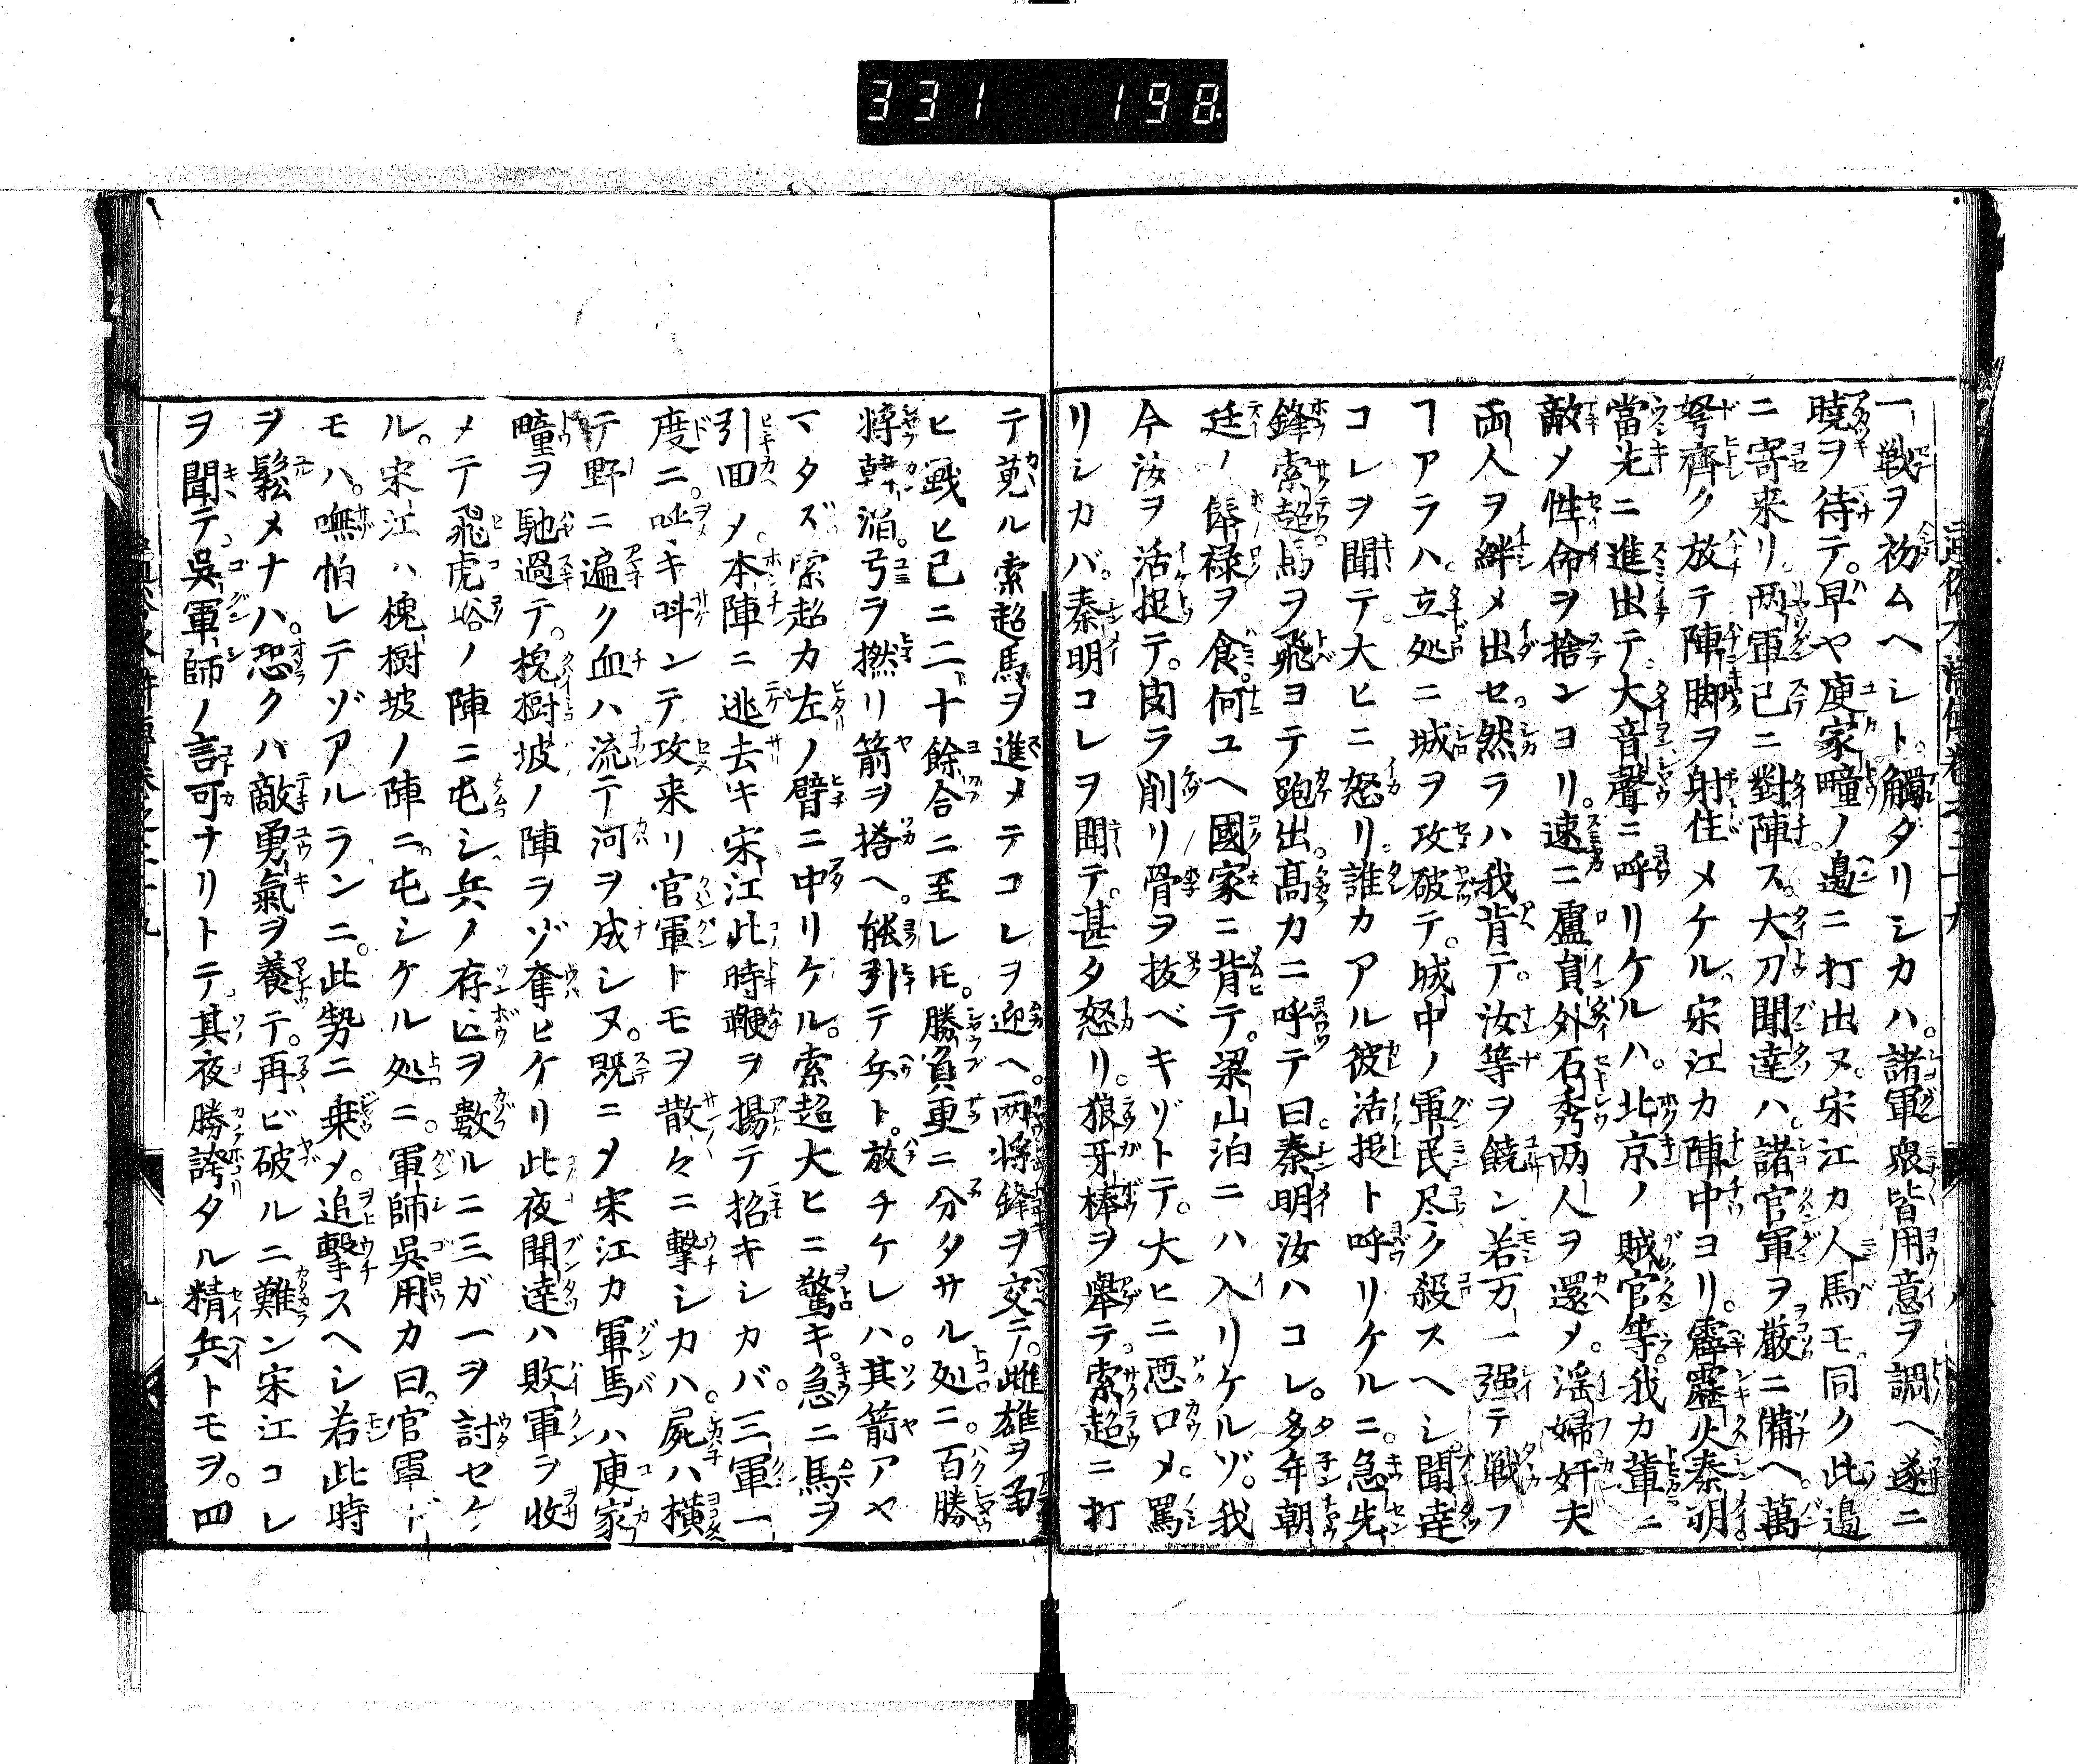 331 198
一戦ヲ初ムヘシト觸タリシカハ。諸軍衆皆用意ヲ調ヘ遂ニ
曉ヲ待テ。早ヤ庾家疃ノ邉ニ打出ヌ。宋江カ人馬モ同ク此邉
ニ寄来リ。两軍已ニ對陣ス。大刀聞達ハ。諸官軍ヲ厳ニ備ヘ。萬
弩齊ク放テ陣脚ヲ射住メケル。宋江カ陣中ヨリ。霹靂火秦明
當先ニ進出テ大音聲ニ呼リケルハ。北京ノ賊官等我カ軰ニ
敵メ性命ヲ捨ンヨリ。速ニ盧員外石秀两人ヲ還メ。淫婦奸夫
両人ヲ絆メ出セ。然ラハ我背テ。汝等ヲ饒ン若万一强テ戦フ
ヿアラハ。立処ニ城ヲ攻破テ。城中ノ軍民尽ク殺スヘシ聞達
コレヲ聞テ。大ヒニ怒リ誰カアル彼活捉ト呼リケルニ。急先
鋒索超。馬ヲ飛ヨテ跑出。髙カニ呼テ曰秦明汝ハコレ。多年朝
廷ノ俸禄ヲ食。何ユヘ國家ニ背テ。梁山泊ニハ入リケルゾ。我
今汝ヲ活捉テ。肉ラ削リ骨ヲ抜ベキゾトテ。大ヒニ悪口メ。罵
リシカバ。秦明コレヲ聞テ。甚タ怒リ。狼牙棒ヲ舉テ。索超ニ打
テ蒐ル索超馬ヲ進メテコレヲ迎ヘ。两将鋒ヲ交テ。雌雄ヲ爭
ヒ戦ヒ已ニ二十餘合ニ至レ𪜈。勝負更ニ分タサル処ニ。百勝
將韓滔。弓ヲ撚リ箭ヲ搭ヘ。能引テ兵ト。放チケレハ。其箭アヤ
マタズ索超カ左ノ臂ニ中リケル。索超大ヒニ驚キ。急ニ馬ヲ
引回メ。本陣ニ逃去キ宋江此時鞭ヲ揚テ招キシカバ。三軍一
度ニ。吆キ呌ンテ攻来リ官軍トモヲ散々ニ擊シカハ。屍ハ横
テ野ニ遍ク血ハ流テ河ヲ成シヌ。既ニメ宋江カ軍馬ハ庾家
疃ヲ馳過テ。槐樹坡ノ陣ラゾ奪ヒケリ此夜聞達ハ敗軍ヲ收
メテ飛虎峪ノ陣ニ屯シ兵ノ存亡ヲ數ルニ三ガ一ヲ討セケ
ル。宋江ハ槐樹坡ノ陣ニ。屯シケル処ニ。軍師吳用カ曰。官軍ド
モハ。嘸怕レテゾアルランニ。此勢ニ乗メ。追擊スヘシ若此時
ヲ鬆メナハ。恐クハ敵勇氣ヲ養テ。再ビ破ルニ難ン宋江コレ
ヲ聞テ。吳軍師ノ言可ナリトテ。其夜勝誇タル精兵トモヲ。四